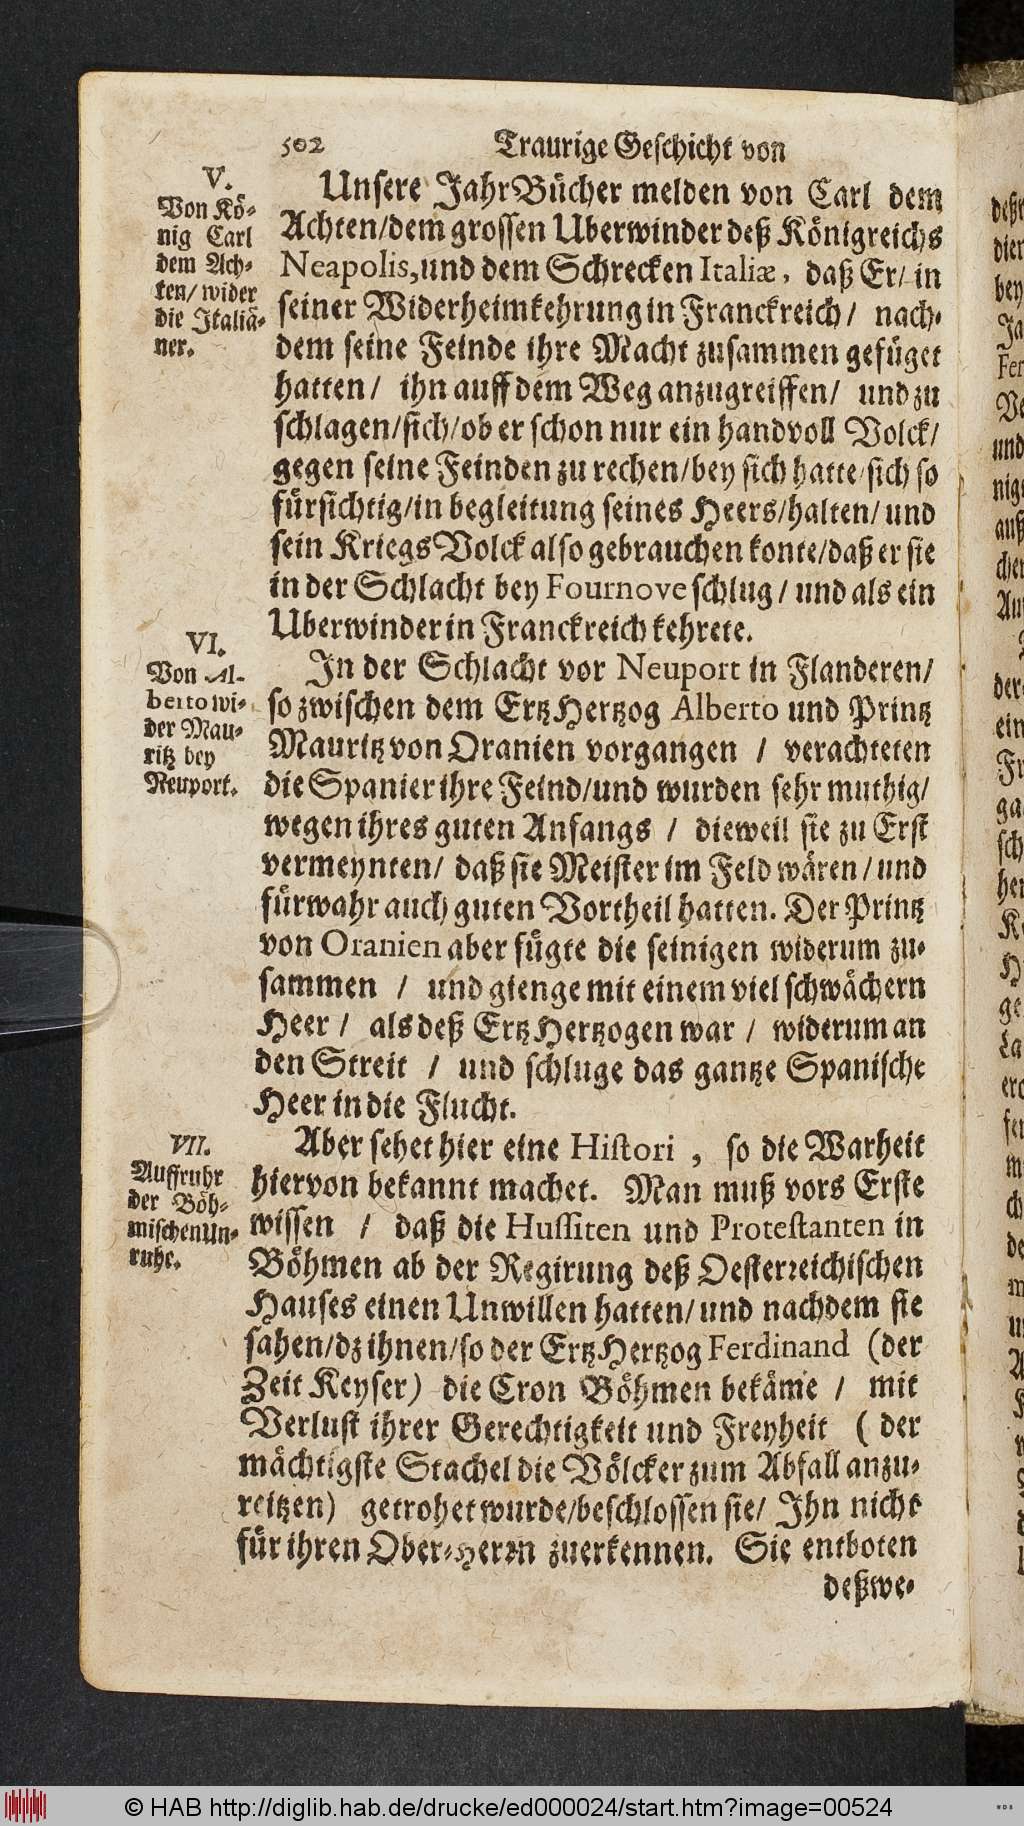 502 Traurige Geschicht von
V.
Von Kö-
nig Carl
dem Ach-
ten/ wider
die Italiä-
ner.
Unsere JahrBücher melden von Carl dem
Achten/dem grossen Uberwinder deß Königreichs
Neapolis, und dem Schrecken Italiæ, daß Er/ in
seiner Widerheimkehrung in Franckreich/ nach-
dem seine Feinde ihre Macht zusammen gefüget
hatten/ ihn auff dem Weg anzugreiffen/ und zu
schlagen/sich/ob er schon nur ein handvoll Volck/
gegen seine Feinden zu rechen/bey sich hatte/sich so
fürsichtig/in begleitung seines Heers/halten/und
sein KriegsVolck also gebrauchen konte/daß er sie
in der Schlacht bey Fournove schlug/ und als ein
Uberwinder in Franckreich kehrete.
VI.
Von Al-
berto wi-
der Mau-
ritz bey
Neuport.
In der Schlacht vor Neuport in Flanderen/
so zwischen dem ErtzHertzog Alberto und Printz
Mauritz von Oranien vorgangen / verachteten
die Spanier ihre Feind/und wurden sehr muthig/
wegen ihres guten Anfangs / dieweil sie zu Erst
vermeynten/ daß sie Meister im Feld wären/und
fürwahr auch guten Vortheil hatten. Der Printz
von Oranien aber fügte die seinigen widerum zu-
sammen / und gienge mit einem viel schwächern
Heer/ als deß ErtzHertzogen war / widerum an
den Streit / und schluge das gantze Spanische
Heer in die Flucht.
VII.
Auffruhr
der Böh-
mischen Un-
ruhe.
Aber sehet hier eine Histori, so die Warheit
hiervon bekannt machet. Man muß vors Erste
wissen / daß die Hussiten und Protestanten in
Böhmen ab der Regirung deß Oesterreichischen
Hauses einen Unwillen hatten/und nachdem sie
sahen/dz ihnen/so der ErtzHertzog Ferdinand (der
Zeit Keyser) die Cron Böhmen bekäme / mit
Verlust ihrer Gerechtigkeit und Freyheit ( der
mächtigste Stachel die Völcker zum Abfall anzu-
reitzen) getrohet wurde/beschlossen sie/ Ihn nicht
für ihren Ober-Herrn zuerkennen. Sie entboten
deßwe-
© HAB http://diglib.hab.de/drucke/ed000024/start.htm?image=00524